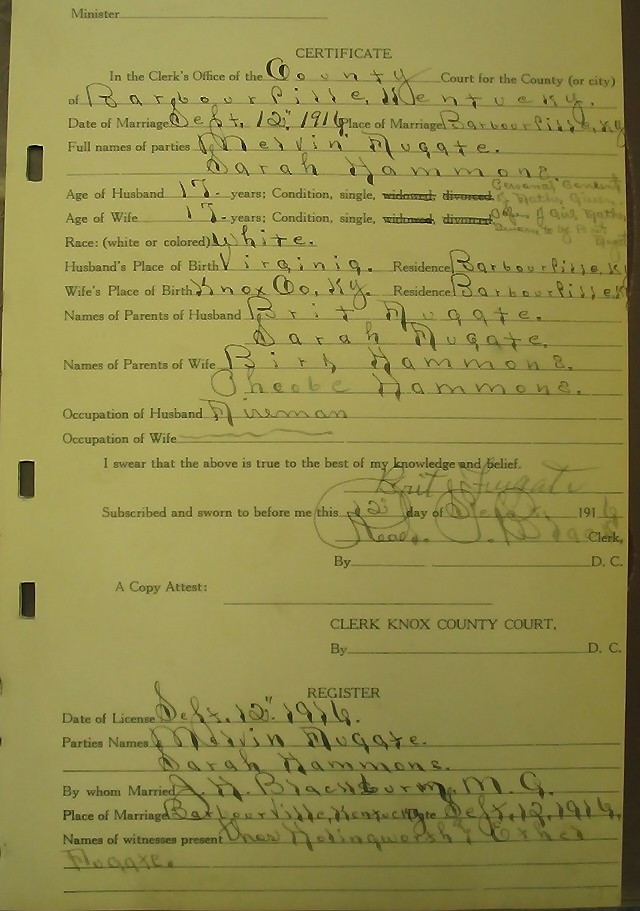 Minister
CERTIFICATE
In the Clerk's Office of the County Court for the County (or city)
of Barbourville, Kentucky.
Date of Marriage Sept, 12", 1916 Place of Marriage Barbourville, Ky
Full names of parties Mervin Fuggte.
Sarah Hammons.
Age of Husband 17- years; Condition, single, widowed, divorced. Personal Consent
Age of Wife 17- years; Condition, single, widowed, divorced
Race: (white or colored) White.
Husband's Place of Birth Virginia. Residence Barbourville, Ky
Wife's Place of Birth Knox Co, Ky. Residence Barbourville, K
Names of Parents of Husband Brit Fuggte.
Sarah Fuggte.
Names of Parents of Wife Birk Hammons.
Pheobe Hammons.
Occupation of Husband Fireman
Occupation of Wife
I swear that the above is true to the best of my knowledge and belief.
Brit Fugate
Subscribed and sworn to before me this 12" day of Sept. 1916
Read. Clerk,
By D. C.
A Copy Attest:
CLERK KNOX COUNTY COURT.
By D. C.
REGISTER
Date of License Sept. 12" 1916.
Parties Names Mervin Fuggte.
Sarah Hammons.
By whom Married J. H. Blackburn, M. G.
Place of Marriage Barbourville, Kentucky Date Sept, 12, 1916,
Names of witnesses present Hollingworth &
Fuggte.